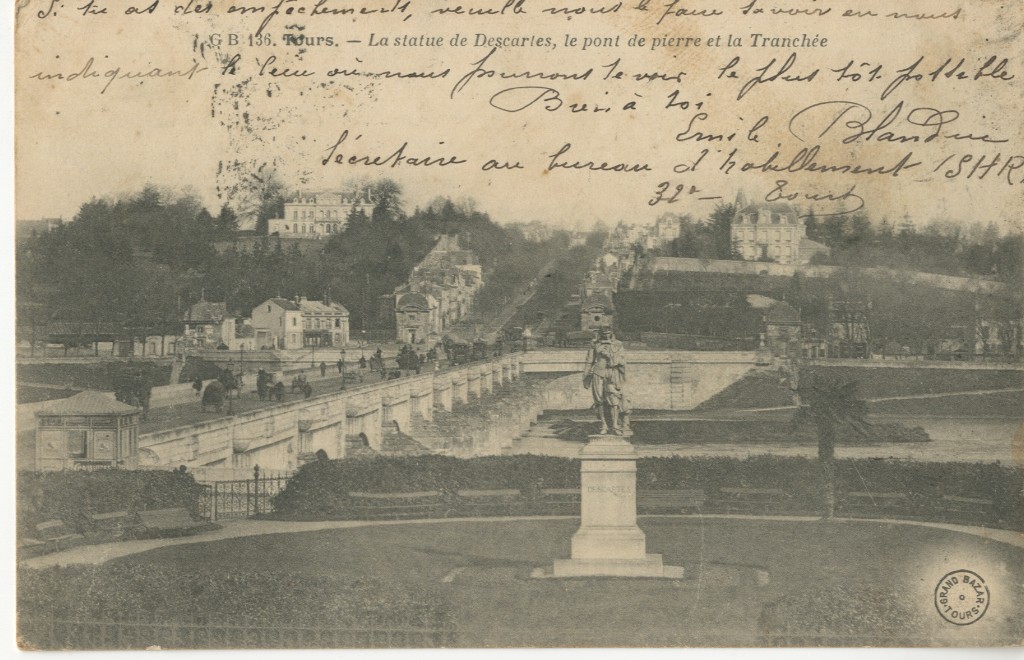 Si tu as des empêchements, veuille nous le faire savoir en nous
G B 136. Tours. — La statue de Descartes, le pont de pierre et la Tranchée
indiquant le lieu où nous pourrons te voir le plus tôt possible
Bien à toi
Emile Blandin
Sécretaire au bureau d'habillement
32e — Tours
DESCARTES
GRAND BAZAR
TOURS